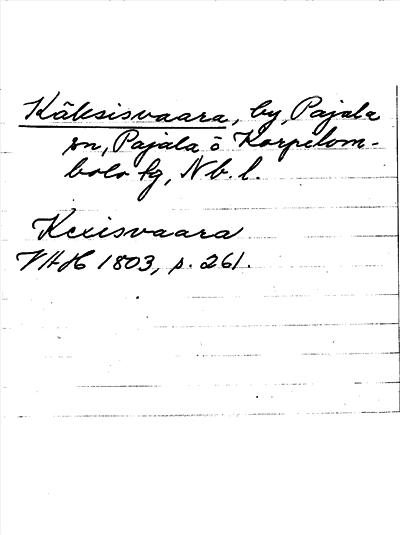 Käksisvaara, by, Pajala
sn, Pajala o Korpilom-
bolo tg, Nb. l.
Kexisvaara
VAH 1803, p. 261.